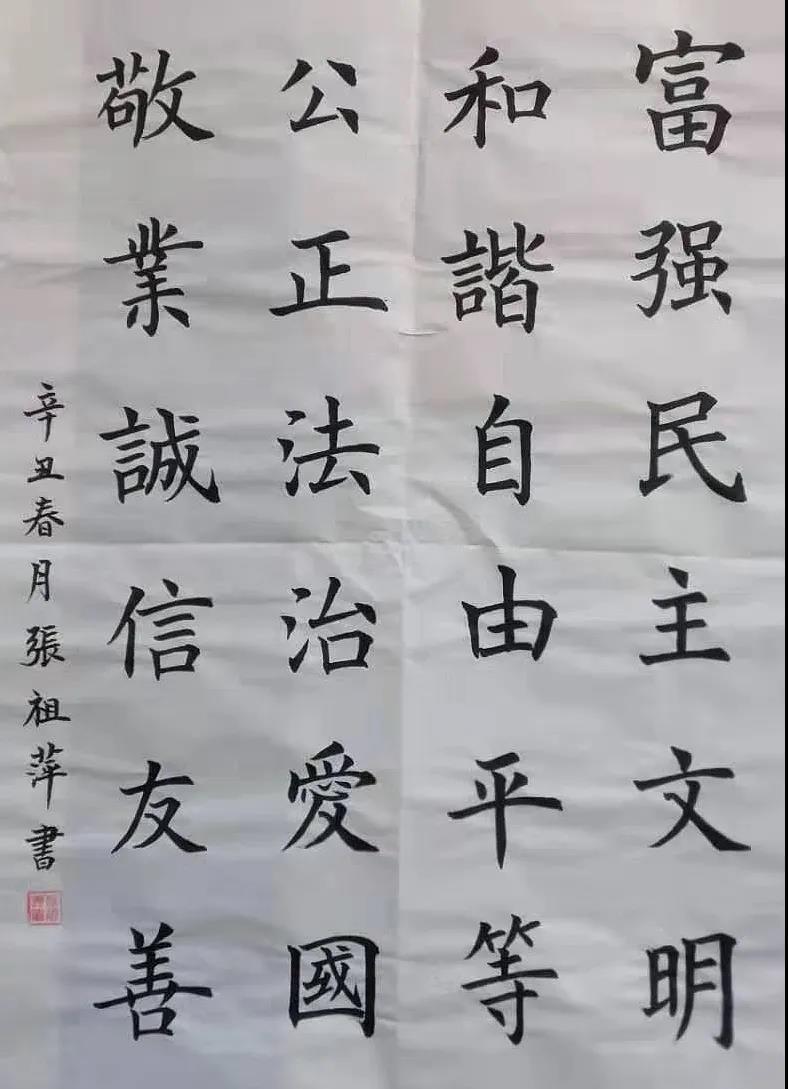 富强民主文明
和諧自由平等
公正法治愛國
敬業誠信友善
辛丑春月張祖萍書